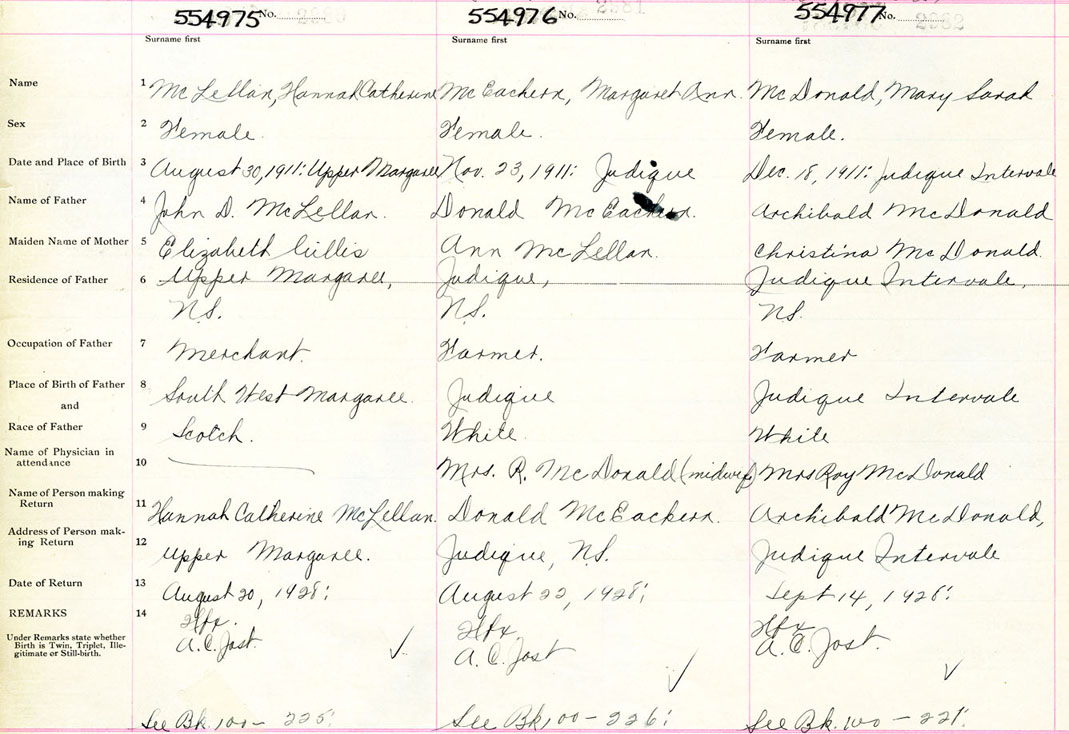 554975 No. 2980
554976 No. 2981
554977 No. 2982
Surname first
Surname first
Surname first
Name 1 McLellan, Hannah Catherine McEachern, Margaret Ann. McDonald, Mary Sarah
Sex 2 Female. Female. Female.
Date and Place of Birth 3 August 30, 1911: Upper Margaree Nov. 23, 1911: Judique Dec. 18, 1911: Judique Intervale
Name of Father 4 John D. McLellan. Donald McEachern. Archibald McDonald
Maiden Name of Mother 5 Elizabeth Gillis Ann McLellan. Christina McDonald.
Residence of Father 6 Upper Margaree, Judique, Judique Intervale,
N.S. N.S. N.S.
Occupation of Father 7 Merchant. Farmer. Farmer
Place of Birth of Father 8 South West Margaree. Judique Judique Intervale
and
Race of Father 9 Scotch. White. White
Name of Physician in
attendance 10 Mrs. R. McDonald (midwife) Mrs Roy McDonald
Name of Person making
Return 11 Hannah Catherine McLellan. Donald McEachern. Archibald McDonald,
Address of Person mak-
ing Return 12 Upper Margaree. Judique, N.S. Judique Intervale
Date of Return 13 August 20, 1928: August 22, 1928; Sept 14, 1928:
REMARKS 14 Hfx. Hfx. Hfx
Under Remarks state whether
Birth is Twin, Triplet, Ille-
gitimate or Still-birth.
A. C. Jost. A. C. Jost A. C. Jost.
See Bk. 100 - 225: See Bk 100 - 226: See Bk. 100 - 227: